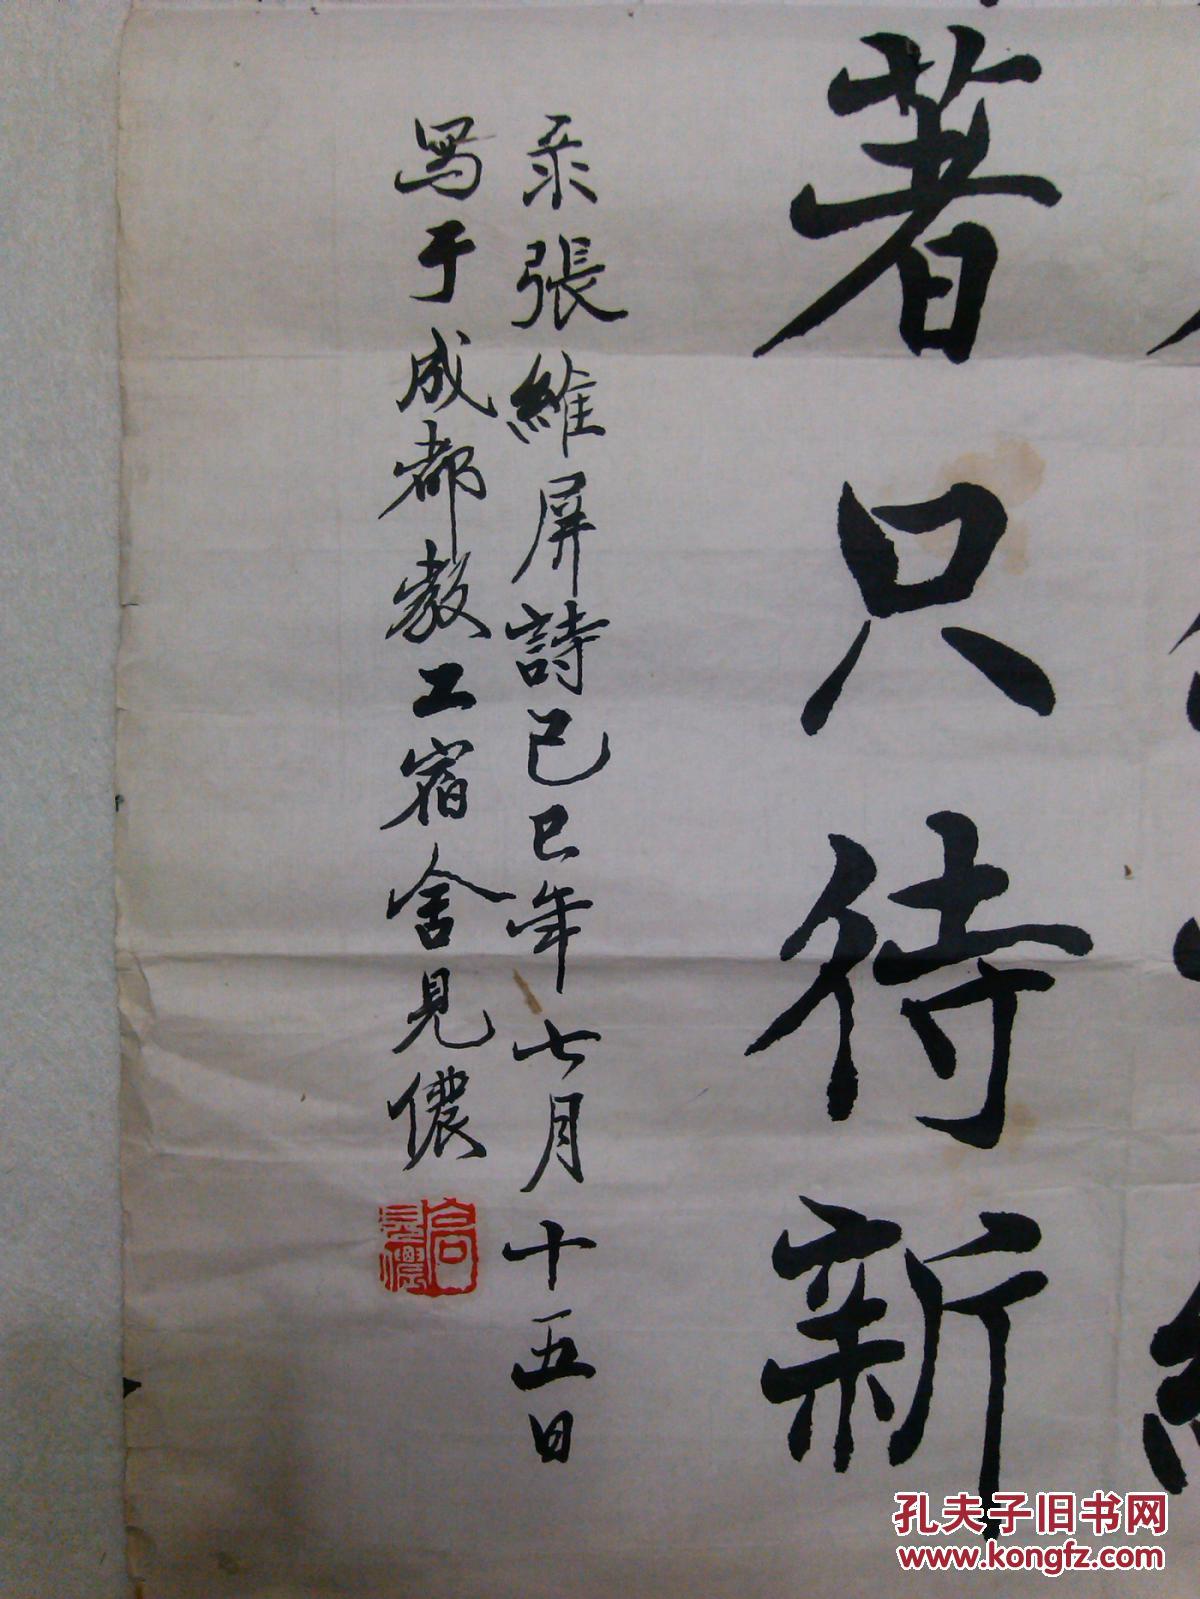 著只待新
录張維屏詩己巳年七月十五日
寫于成都教工宿舍見儂
孔夫子旧书网
www.kongfz.com